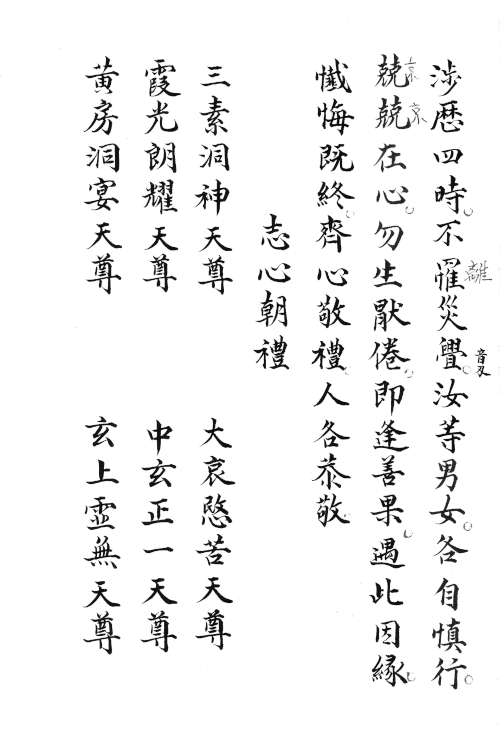 涉歷四時。不罹災舋。汝等男女。各自慎行。
兢兢在心。勿生厭倦。即逢善果。遇此因緣。
懺悔既終。齊心敬禮。人各恭敬
志心朝禮
三素洞神天尊 大哀愍苦天尊
霞光朗耀天尊 中玄正一天尊
黃房洞宴天尊 玄上靈無天尊